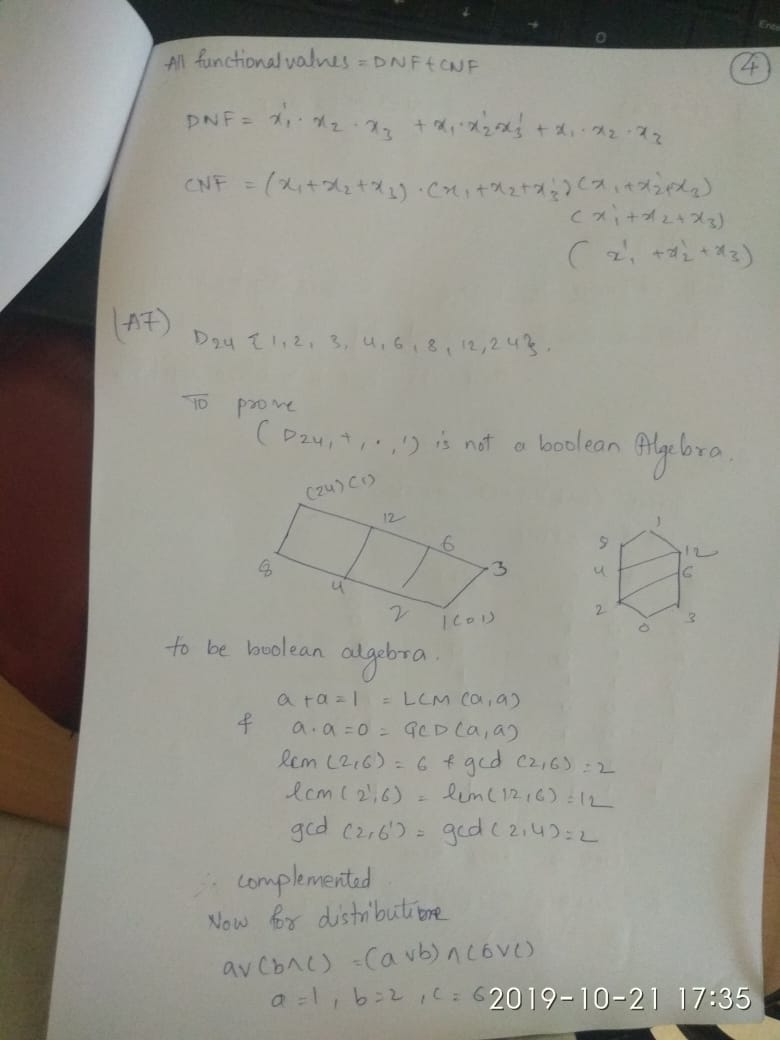 All functional values = DNF + CNF
④
DNF = x₁'. x₂ . x₃ + x₁. x₂'x₃' + x₁. x₂ . x₃
CNF = (x₁+x₂+x₃) . (x₁+x₂+x₃') (x₁+x₂'+x₃)
(x₁'+x₂+x₃)
(x₁' +x₂'+x₃)
(A7)
D24 {1, 2, 3, 4, 6, 8, 12, 24}.
To prove
(D24, +, ., ') is not a boolean Algebra.
(24) (1)
12
6
3
8
4
2
1(0)
1
8
12
4
6
2
3
0
to be boolean algebra.
a + a = 1 = LCM (a, a)
& a . a = 0 = GCD (a, a)
lcm (2,6) = 6 & gcd (2,6) = 2
lcm (2',6) = lcm (12,6) = 12
gcd (2,6') = gcd (2,4) = 2
∴ complemented
Now for distributive
av(b∧c) = (avb) ∧ (bvc)
a = 1, b = 2, c = 6
2019-10-21 17:35